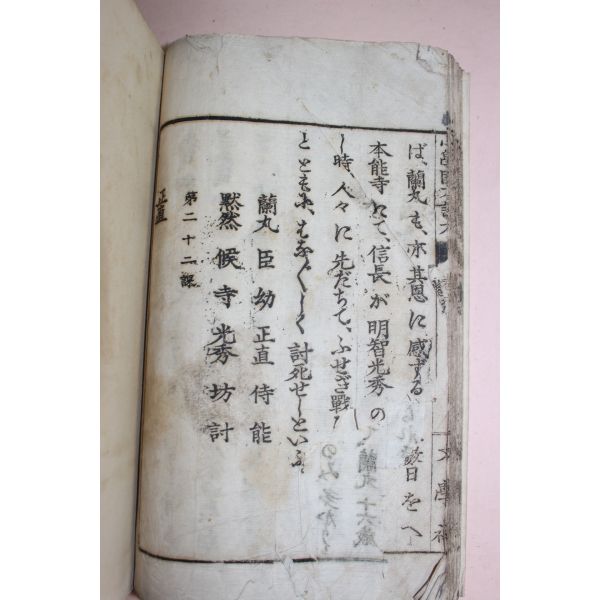 ば、蘭丸も、亦其恩に感ずる
数日をへ
本能寺にて、信長が明智光秀の
し時、人々に先だちて、ふせぎ戦ひ
とともに、はなばなしく討死せしといふ。
蘭丸 臣 幼 正直 侍 能
黙然 候 寺 光秀 坊 討
第二十二課
正直
文學社